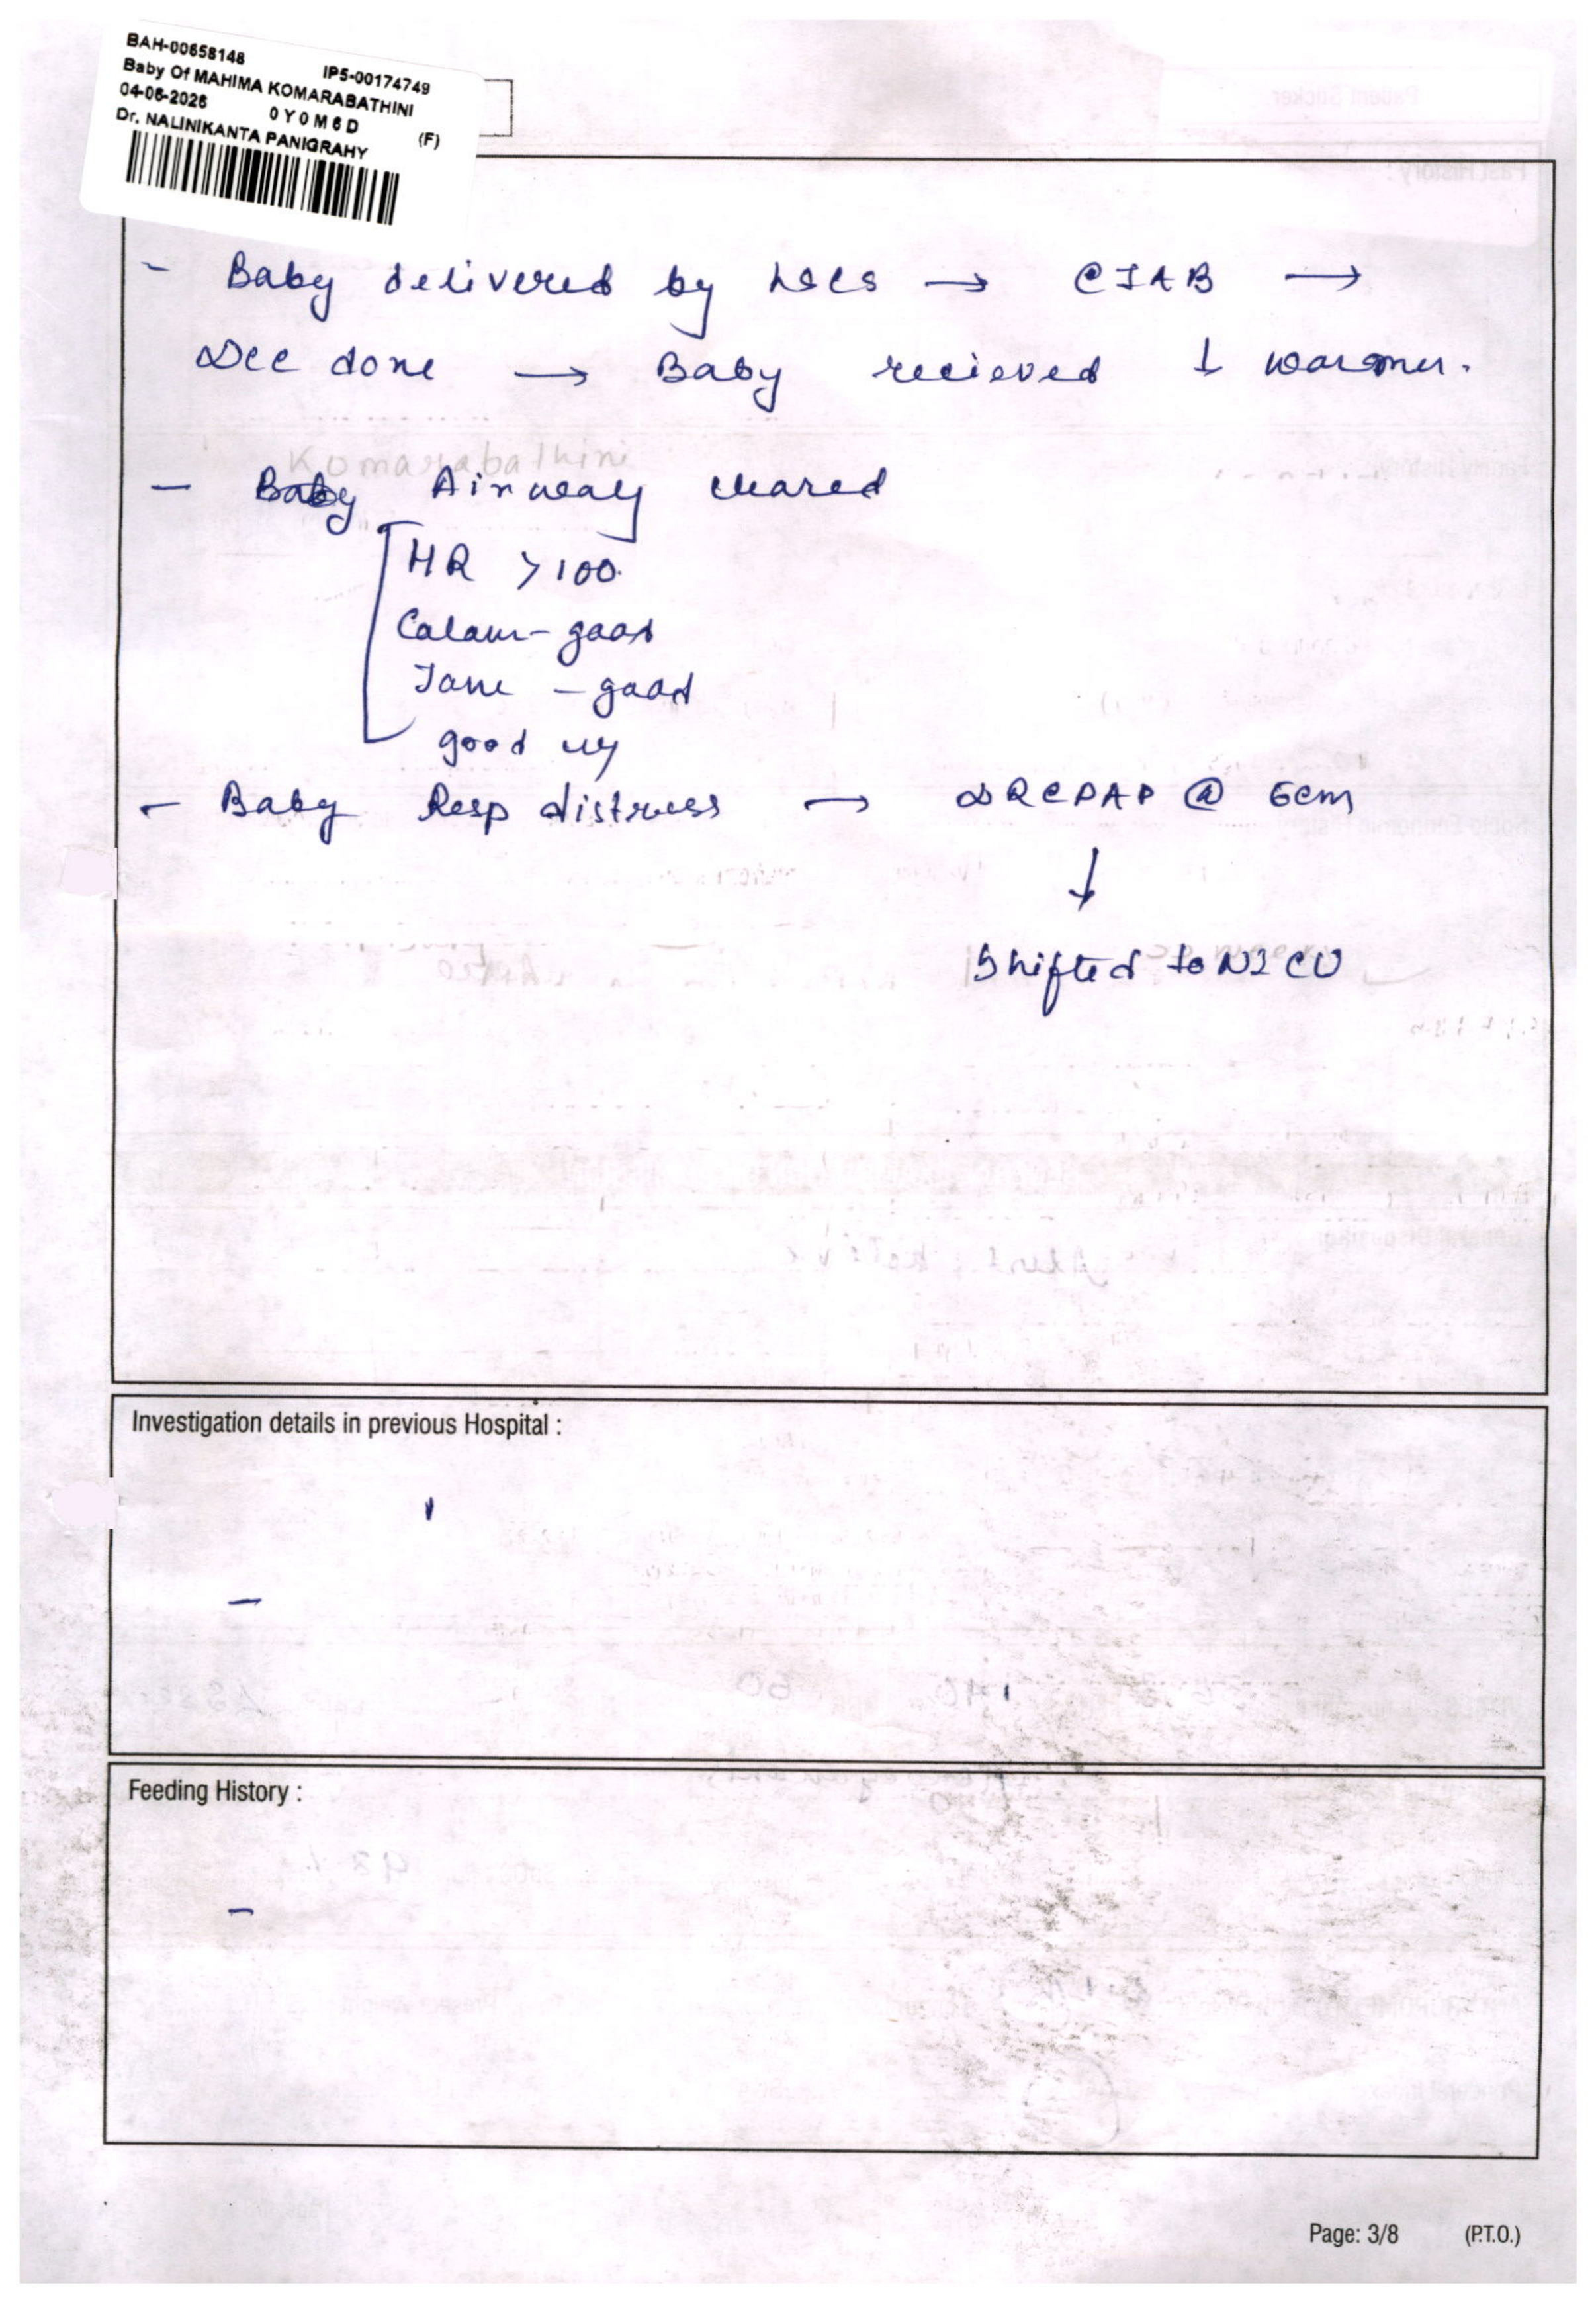 BAH-00658148 IP5-00174749
Baby Of MAHIMA KOMARABATHINI
04-06-2026 0Y0M6D (F)
Dr. NALINIKANTA PANIGRAHY
- Baby delivered by LSCS → CIAB →
DCC done → Baby recieved ↓ warmer.
Komarabathini
- Baby Airway cleared
HR >100.
Colour - good
Tone - good
good cry
- Baby Resp distress → DRCPAP @ 6cm
↓
Shifted to NICU
Investigation details in previous Hospital :
-
Feeding History :
-
Page: 3/8 (P.T.O.)